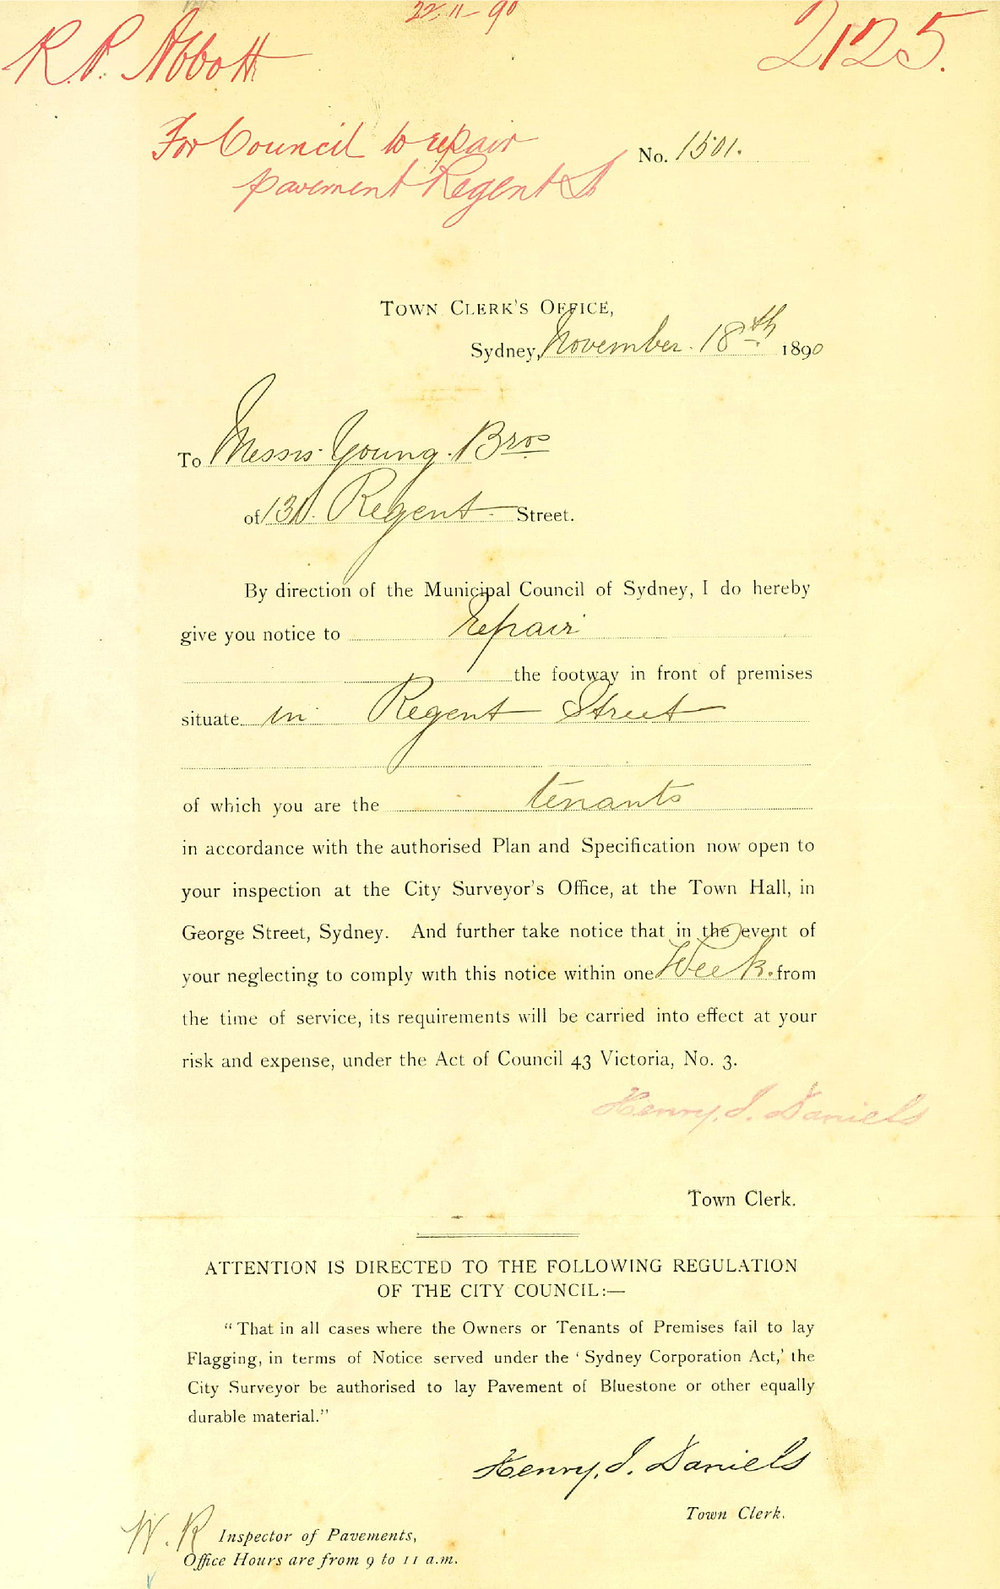 22-11-90
R.P. Abbott
2125.
For Council to repair
pavement Regent St
No. 1501.
Town Clerk's Office,
Sydney, November 18th 1890
To Messrs. Young Bros
of Regent Street.
By direction of the Municipal Council of Sydney, I do hereby
give you notice to repair
the footway in front of premises
situate in Regent Street
of which you are the tenants
in accordance with the authorised Plan and Specification now open to
your inspection at the City Surveyor's Office, at the Town Hall, in
George Street, Sydney. And further take notice that in the event of
your neglecting to comply with this notice within one Week. from
the time of service, its requirements will be carried into effect at your
risk and expense, under the Act of Council 43 Victoria, No. 3.
Henry. J. Daniels
Town Clerk.
ATTENTION IS DIRECTED TO THE FOLLOWING REGULATION
OF THE CITY COUNCIL:—
"That in all cases where the Owners or Tenants of Premises fail to lay
Flagging, in terms of Notice served under the 'Sydney Corporation Act,' the
City Surveyor be authorised to lay Pavement of Bluestone or other equally
durable material."
Henry. J. Daniels
Town Clerk.
W. R Inspector of Pavements,
Office Hours are from 9 to 11 a.m.